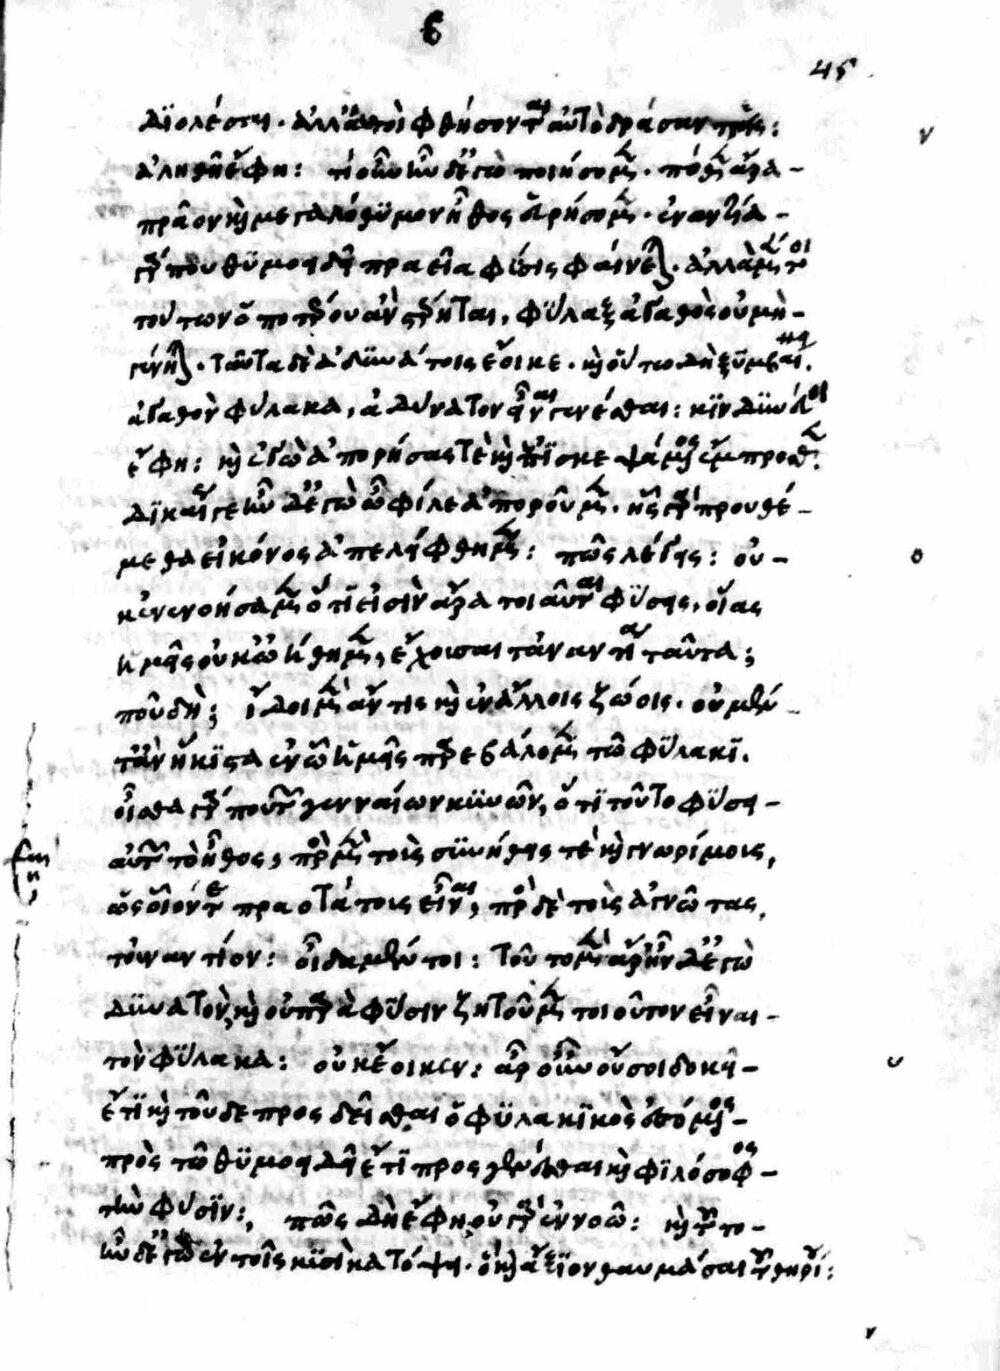 β
45
διολέσαι. ἀλλ' αὐτοὶ φθήσονται αὐτὸ δράσαντες:
ἀληθῆ ἔφη: τί οὖν ἦν δ' ἐγὼ ποιήσομεν. πόθεν ἅμα
πρᾶον καὶ μεγαλόθυμον ἦθος εὑρήσομεν. ἐναντία
γάρ που θυμοειδεῖ πραεῖα φύσις φαίνεται. ἀλλὰ μέντοι
τούτων ὁποτέρου ἂν στέρηται, φύλαξ ἀγαθὸς οὐ μὴ
γένηται. ταῦτα δὲ ἀδυνάτοις ἔοικε. καὶ οὕτω δὴ ξυμβαίνει
ἀγαθὸν φύλακα, ἀδύνατον εἶναι γενέσθαι: κινδυνεύει
ἔφη: καὶ ἐγὼ ἀπορήσας τὲ καὶ ἐπισκεψάμενος τὰ ἔμπροσθεν
δικαίως γε ἦν δ' ἐγὼ ὦ φίλε ἀποροῦμεν. ἧς γὰρ προυθέ-
μεθα εἰκόνος ἀπελείφθημεν: πῶς λέγεις: οὐ-
κ ἐνενοήσαμεν ὅτι εἰσὶν ἄρα τοιαῦται φύσεις, οἵας
ἡμεῖς οὐκ ᾠήθημεν, ἔχουσαι τἀναντία ταῦτα;
ποῦ δή; ἴδοι μὲν ἄν τις καὶ ἐν ἄλλοις ζώοις. οὐ μέν-
τἂν ἥκιστα ἐν ᾧ ἡμεῖς παρεβάλομεν τῷ φύλακι.
οἶσθα γάρ που τῶν γενναίων κυνῶν, ὅτι τοῦτο φύσει
αὐτῶν τὸ ἦθος, πρὸς μὲν τοὺς συνήθεις τὲ καὶ γνωρίμους,
ὡς οἷόν τε πραοτάτους εἶναι, πρὸς δὲ τοὺς ἀγνῶτας,
τοὐναντίον: οἶδα μέντοι: τοῦτο μὲν ἄρα ἦν δ' ἐγὼ
δυνατὸν, καὶ οὐ παρὰ φύσιν ζητοῦμεν τοιοῦτον εἶναι
τὸν φύλακα: οὐκ ἔοικεν: ἆρ' οὖν οὔ σοι δοκεῖ
ἔτι καὶ τοῦδε προσδεῖσθαι ὁ φυλακικὸς ἐσόμενος
πρὸς τῷ θυμοειδεῖ ἔτι προσγενέσθαι καὶ φιλόσοφος
τὴν φύσιν:, πῶς δὴ ἔφη, οὐ γὰρ ἐννοῶ: καὶ τοῦτο
ἦν δ' ἐγὼ ἐν τοῖς κυσὶ κατόψει. ὃ καὶ ἄξιον θαυμάσαι τοῦ θηρίου: